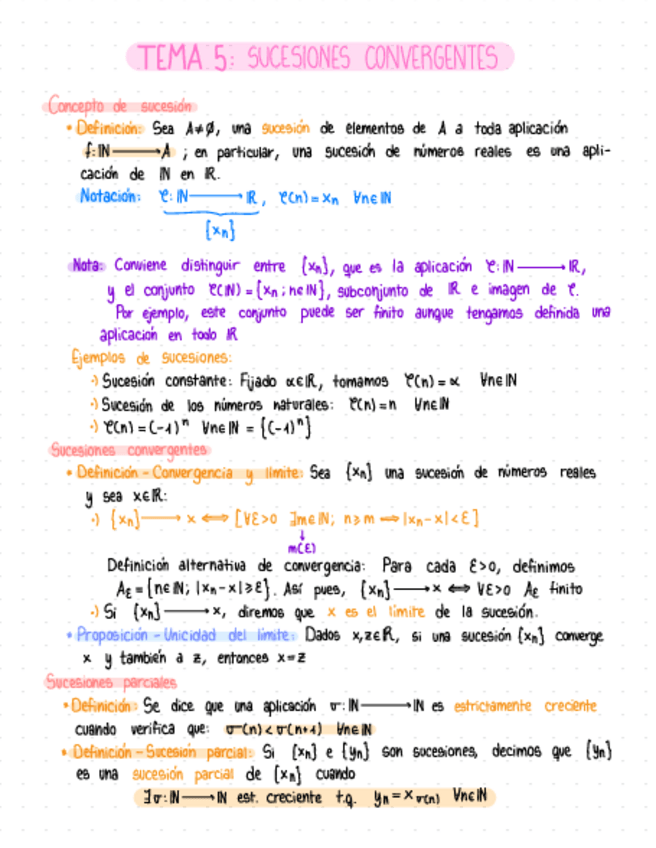 TEMA 5: SUCESIONES CONVERGENTES
Concepto de sucesión
• Definición: Sea A≠∅, una sucesión de elementos de A a toda aplicación
f:ℕ⟶A ; en particular, una sucesión de números reales es una apli-
cación de ℕ en ℝ.
Notación: φ:ℕ⟶ℝ, φ(n)=xₙ ∀n∈ℕ
{xₙ}
Nota: Conviene distinguir entre {xₙ}, que es la aplicación φ:ℕ⟶ℝ,
y el conjunto φ(ℕ)={xₙ ; n∈ℕ}, subconjunto de ℝ e imagen de φ.
Por ejemplo, este conjunto puede ser finito aunque tengamos definida una
aplicación en todo ℝ
Ejemplos de sucesiones:
·) Sucesión constante: Fijado α∈ℝ, tomamos φ(n)=α ∀n∈ℕ
·) Sucesión de los números naturales: φ(n)=n ∀n∈ℕ
·) φ(n)=(-1)ⁿ ∀n∈ℕ = {(-1)ⁿ}
Sucesiones convergentes
• Definición - Convergencia y límite: Sea {xₙ} una sucesión de números reales
y sea x∈ℝ:
·) {xₙ}⟶x ⟺ [∀ε>0 ∃m∈ℕ; n≥m ⟺ |xₙ-x|<ε]
↓
m(ε)
Definición alternativa de convergencia: Para cada ε>0, definimos
Aε={n∈ℕ; |xₙ-x|≥ε}. Así pues, {xₙ}⟶x ⟺ ∀ε>0 Aε finito
·) Si {xₙ}⟶x, diremos que x es el límite de la sucesión.
• Proposición - Unicidad del límite: Dados x,z∈ℝ, si una sucesión {xₙ} converge
x y también a z, entonces x=z
Sucesiones parciales
• Definición: Se dice que una aplicación σ:ℕ⟶ℕ es estrictamente creciente
cuando verifica que: σ(n)<σ(n+1) ∀n∈ℕ
• Definición - Sucesión parcial: Si {xₙ} e {yₙ} son sucesiones, decimos que {yₙ}
es una sucesión parcial de {xₙ} cuando
∃σ:ℕ⟶ℕ est. creciente t.q. yₙ=x_σ(n) ∀n∈ℕ